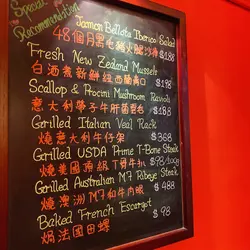 Special
Recommendation
Jamon Bellota Iberico Salad
48個月黑毛豬火腿沙律 $188
Fresh New Zealand Mussels
白酒煮新鮮紐西蘭青口 $188
Scallop & Procini Mushroom Ravioli
意大利帶子牛肝菌雲吞 $188
Grilled Italian Veal Rack
燒意大利牛仔架 $368
Grilled USDA Prime T-Bone Steak
燒美國頂級T骨牛扒 $98/100g
Grilled Australian M7 Ribeye Steak
燒澳洲M7和牛肉眼 $488
Baked French Escargot
焗法國田螺 $98